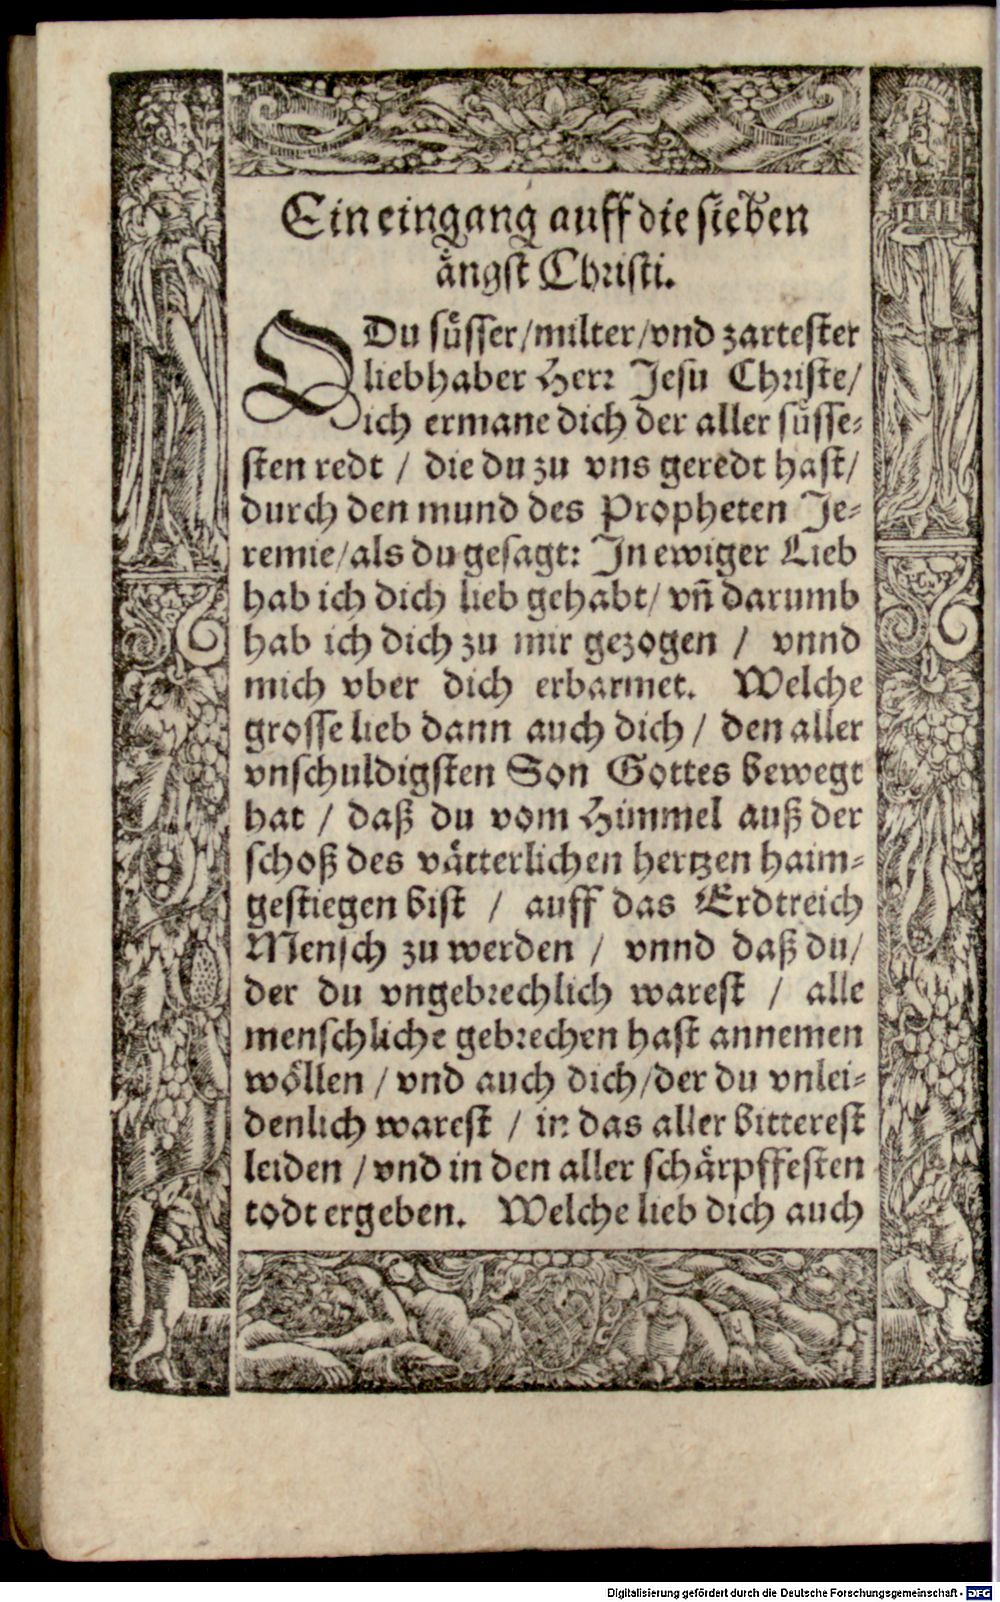 Ein eingang auff die sieben
ångst Christi.
ODu sůsser/milter/vnd zartester
liebhaber Herr Jesu Christe/
ich ermane dich der aller sůsse⸗
sten redt / die du zu vns geredt hast/
durch den mund des Propheten Je⸗
remie/als du gesagt: In ewiger Lieb
hab ich dich lieb gehabt/ vñ darumb
hab ich dich zu mir gezogen / vnnd
mich vber dich erbarmet. Welche
grosse lieb dann auch dich / den aller
vnschuldigsten Son Gottes bewegt
hat / daß du vom Himmel auß der
schoß des våtterlichen hertzen haim⸗
gestiegen bist / auff das Erdtreich
Mensch zu werden / vnnd daß du/
der du vngebrechlich warest / alle
menschliche gebrechen hast annemen
wôllen / vnd auch dich/der du vnlei⸗
denlich warest / in das aller bitterest
leiden / vnd in den aller schårpffesten
todt ergeben. Welche lieb dich auch
Digitalisierung gefördert durch die Deutsche Forschungsgemeinschaft - DFG